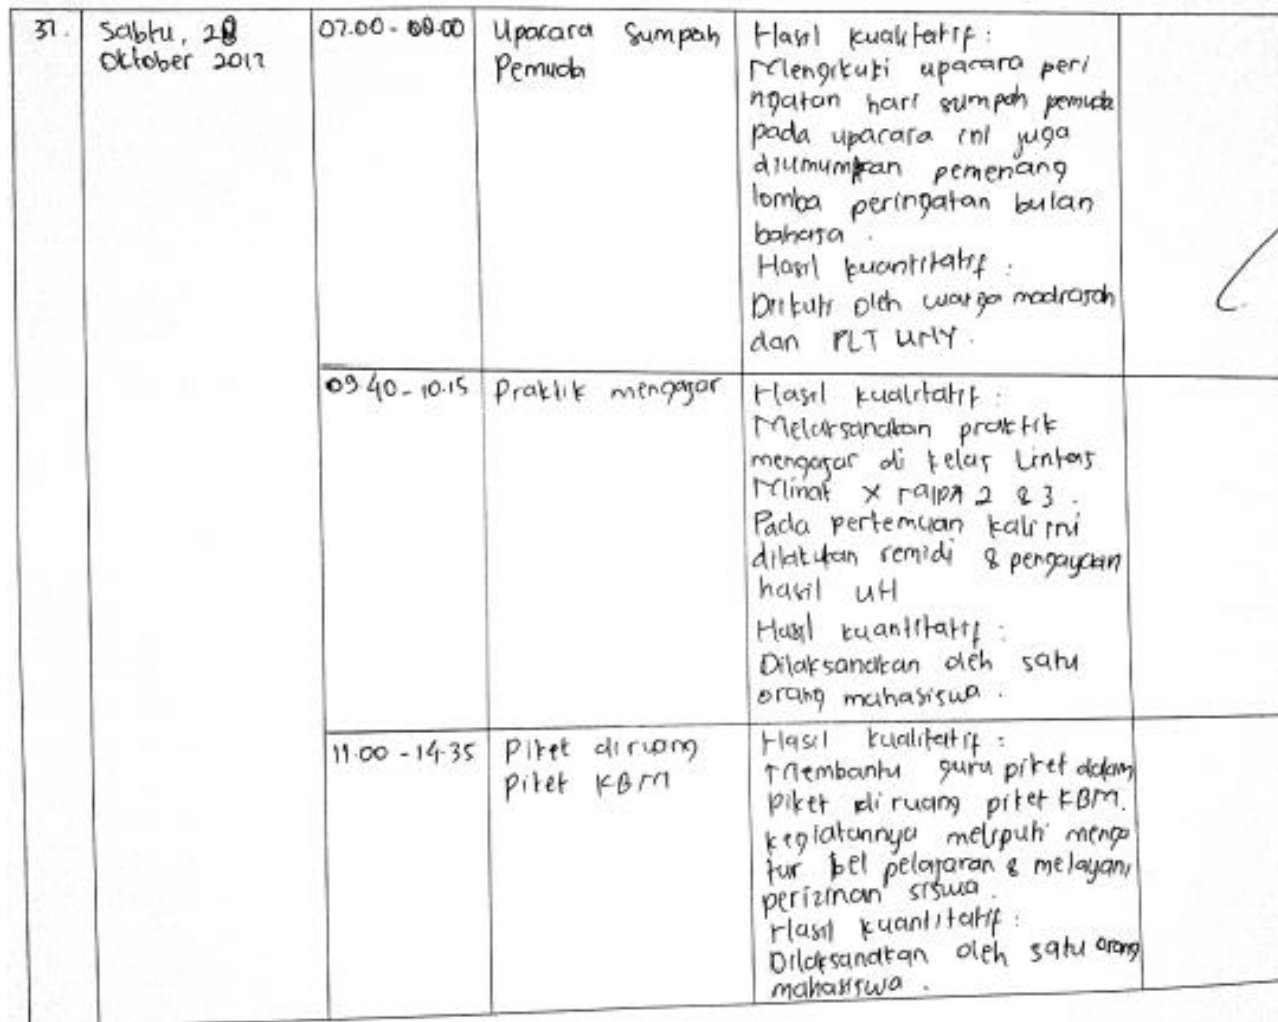 37.
Sabtu, 28
Oktober 2017
07.00 - 08.00
Upacara Sumpah
Pemuda
Hasil kualitatif :
Mengikuti upacara peri
ngatan hari sumpah pemuda
pada upacara ini juga
diumumkan pemenang
lomba peringatan bulan
bahasa .
Hasil kuantitatif :
Diikuti oleh warga madrasah
dan PLT UNY .
09.40 - 10.15
Praktik mengajar
Hasil kualitatif :
Melaksanakan praktik
mengajar di kelas Lintas
Minat X 2 & 3 .
Pada pertemuan kali ini
dilakukan remidi & pengayaan
hasil UH
Hasil kuantitatif :
Dilaksanakan oleh satu
orang mahasiswa .
11.00 - 14.35
Piket diruang
piket KBM
Hasil kualitatif :
Membantu guru piket dalam
piket diruang piket KBM.
kegiatannya meliputi menga
tur bel pelajaran & melayani
perizinan siswa .
Hasil kuantitatif :
Dilaksanakan oleh satu orang
mahasiswa .